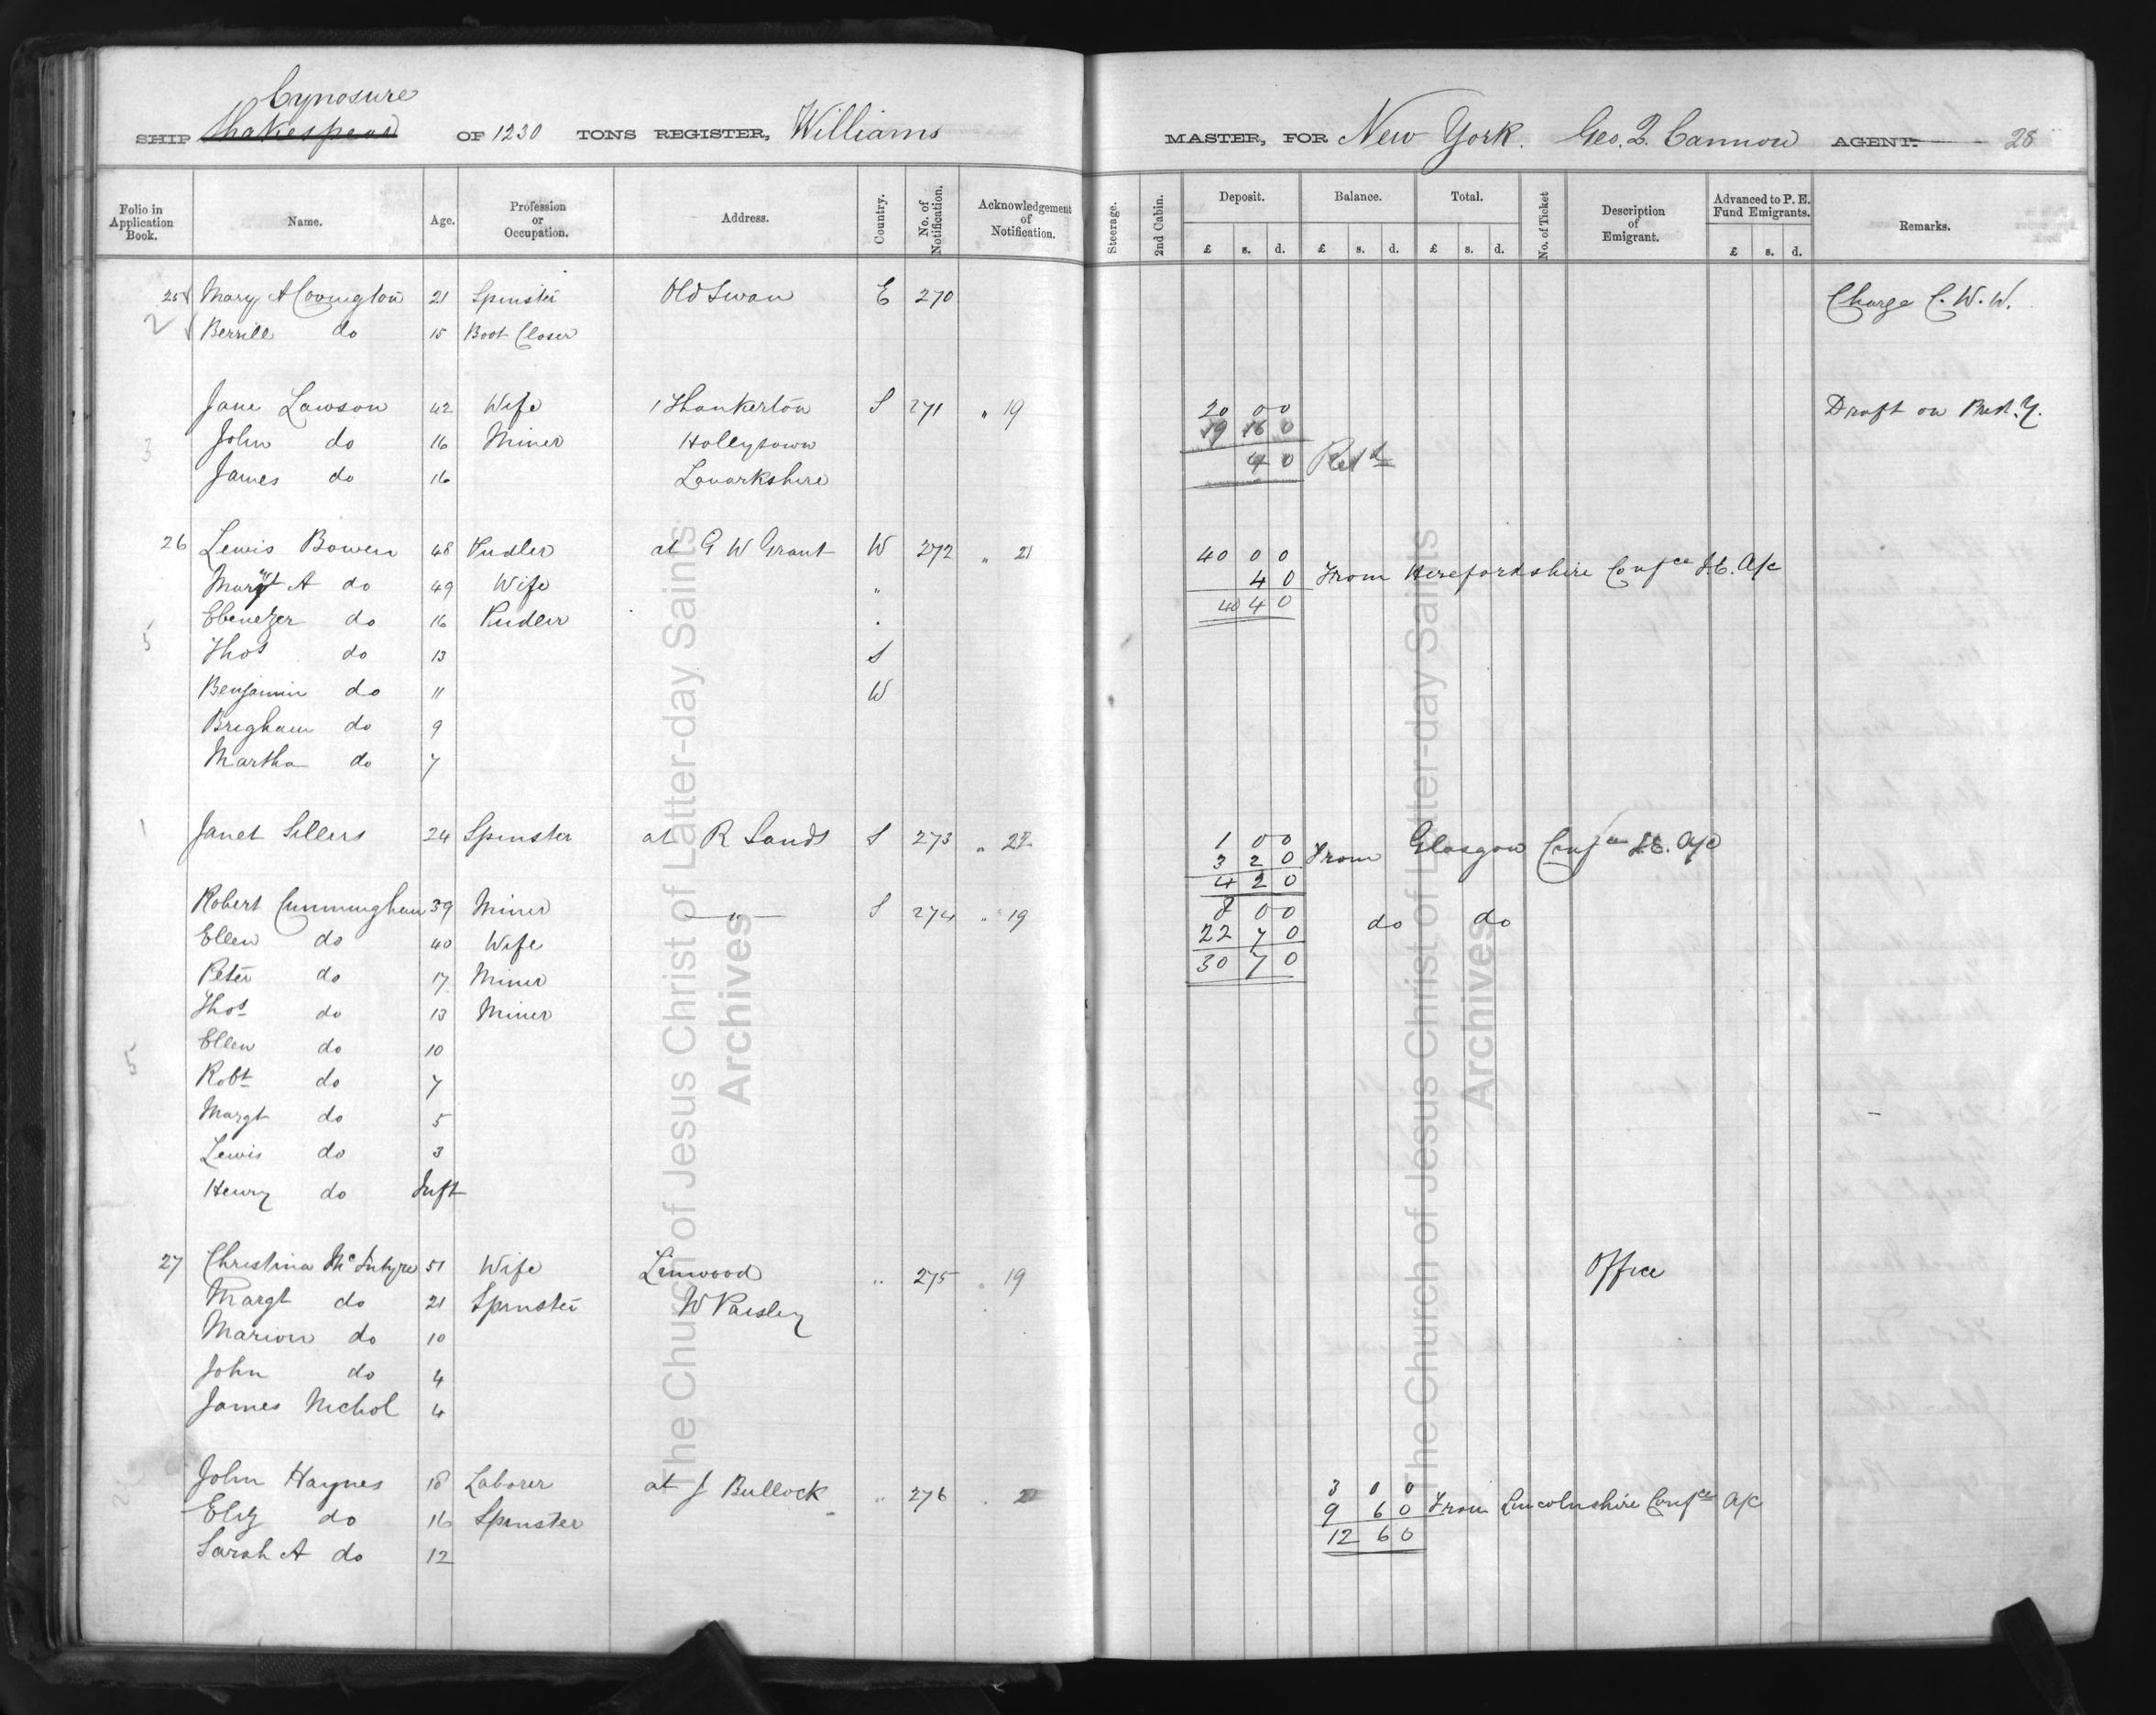 Cynosure
SHIP Shakespear OF 1230 TONS REGISTER, Williams MASTER, FOR New York. Geo. Q. Cannon AGENT. 28
Folio in Application Book. Name. Age. Profession or Occupation. Address. Country. No. of Notification. Acknowledgement of Notification. Steerage. 2nd Cabin. Deposit. Balance. Total. No. of Ticket Description of Emigrant. Advanced to P. E. Fund Emigrants. Remarks.
£ s. d. £ s. d. £ s. d. £ s. d.
25 Mary A Covington 21 Spinster Old Swan E 270 Charge C. W. W.
2 Berrill do 15 Boot Closer
Jane Lawson 42 Wife 1 Thankerton S 271 " 19 20 0 0 Draft on Prest. Y.
3 John do 16 Miner Hollytown 19 16 0
James do 16 Lanarkshire 4 0 Retd
26 Lewis Bowen 48 Pudler at G W Grant W 272 " 21 40 0 0
Margt A do 49 Wife " 4 0 From Herefordshire Confce A/c
5 Ebenezer do 16 Pudler 40 4 0
Thos do 13 S
Benjamin do 11 W
Brigham do 9
Martha do 7
1 Janet Sellers 24 Spinster at R Sands S 273 " 22 1 0 0
3 2 0 From Glasgow Confce A/c
4 2 0
Robert Cunningham 39 Miner — " — S 274 " 19 8 0 0 do do
Ellen do 40 Wife 22 7 0
Peter do 17 Miner 30 7 0
Thos do 13 Miner
5 Ellen do 10
Robt do 7
Margt do 5
Lewis do 3
Henry do Inft
27 Christina McIntyre 51 Wife Linwood " 275 " 19 Office
Margt do 21 Spinster W Paisley
Marion do 10
John do 4
James Nichol 4
John Haynes 18 Laborer at J Bullock " 276 " 3 0 0
Eliz do 16 Spinster 9 6 0 From Lincolnshire Confce A/c
Sarah A do 12 12 6 0
The Church of Jesus Christ of Latter-day Saints
Archives
The Church of Jesus Christ of Latter-day Saints
Archives